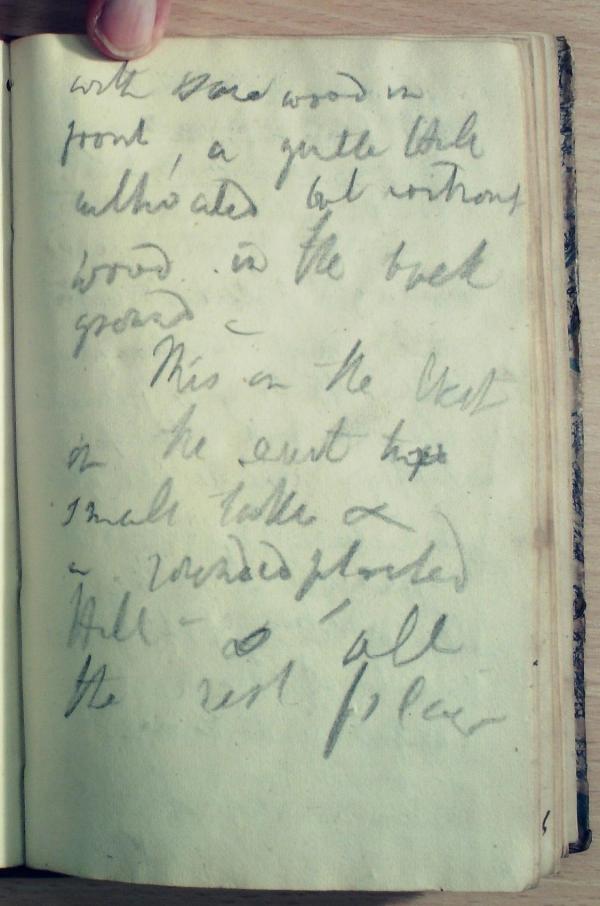 with some wood in
front, a gentle Hill
cultivated but without
wood in the back
ground -
This on the West
on the east two
small lakes &
a rounded planted
Hill - & all
the rest plain